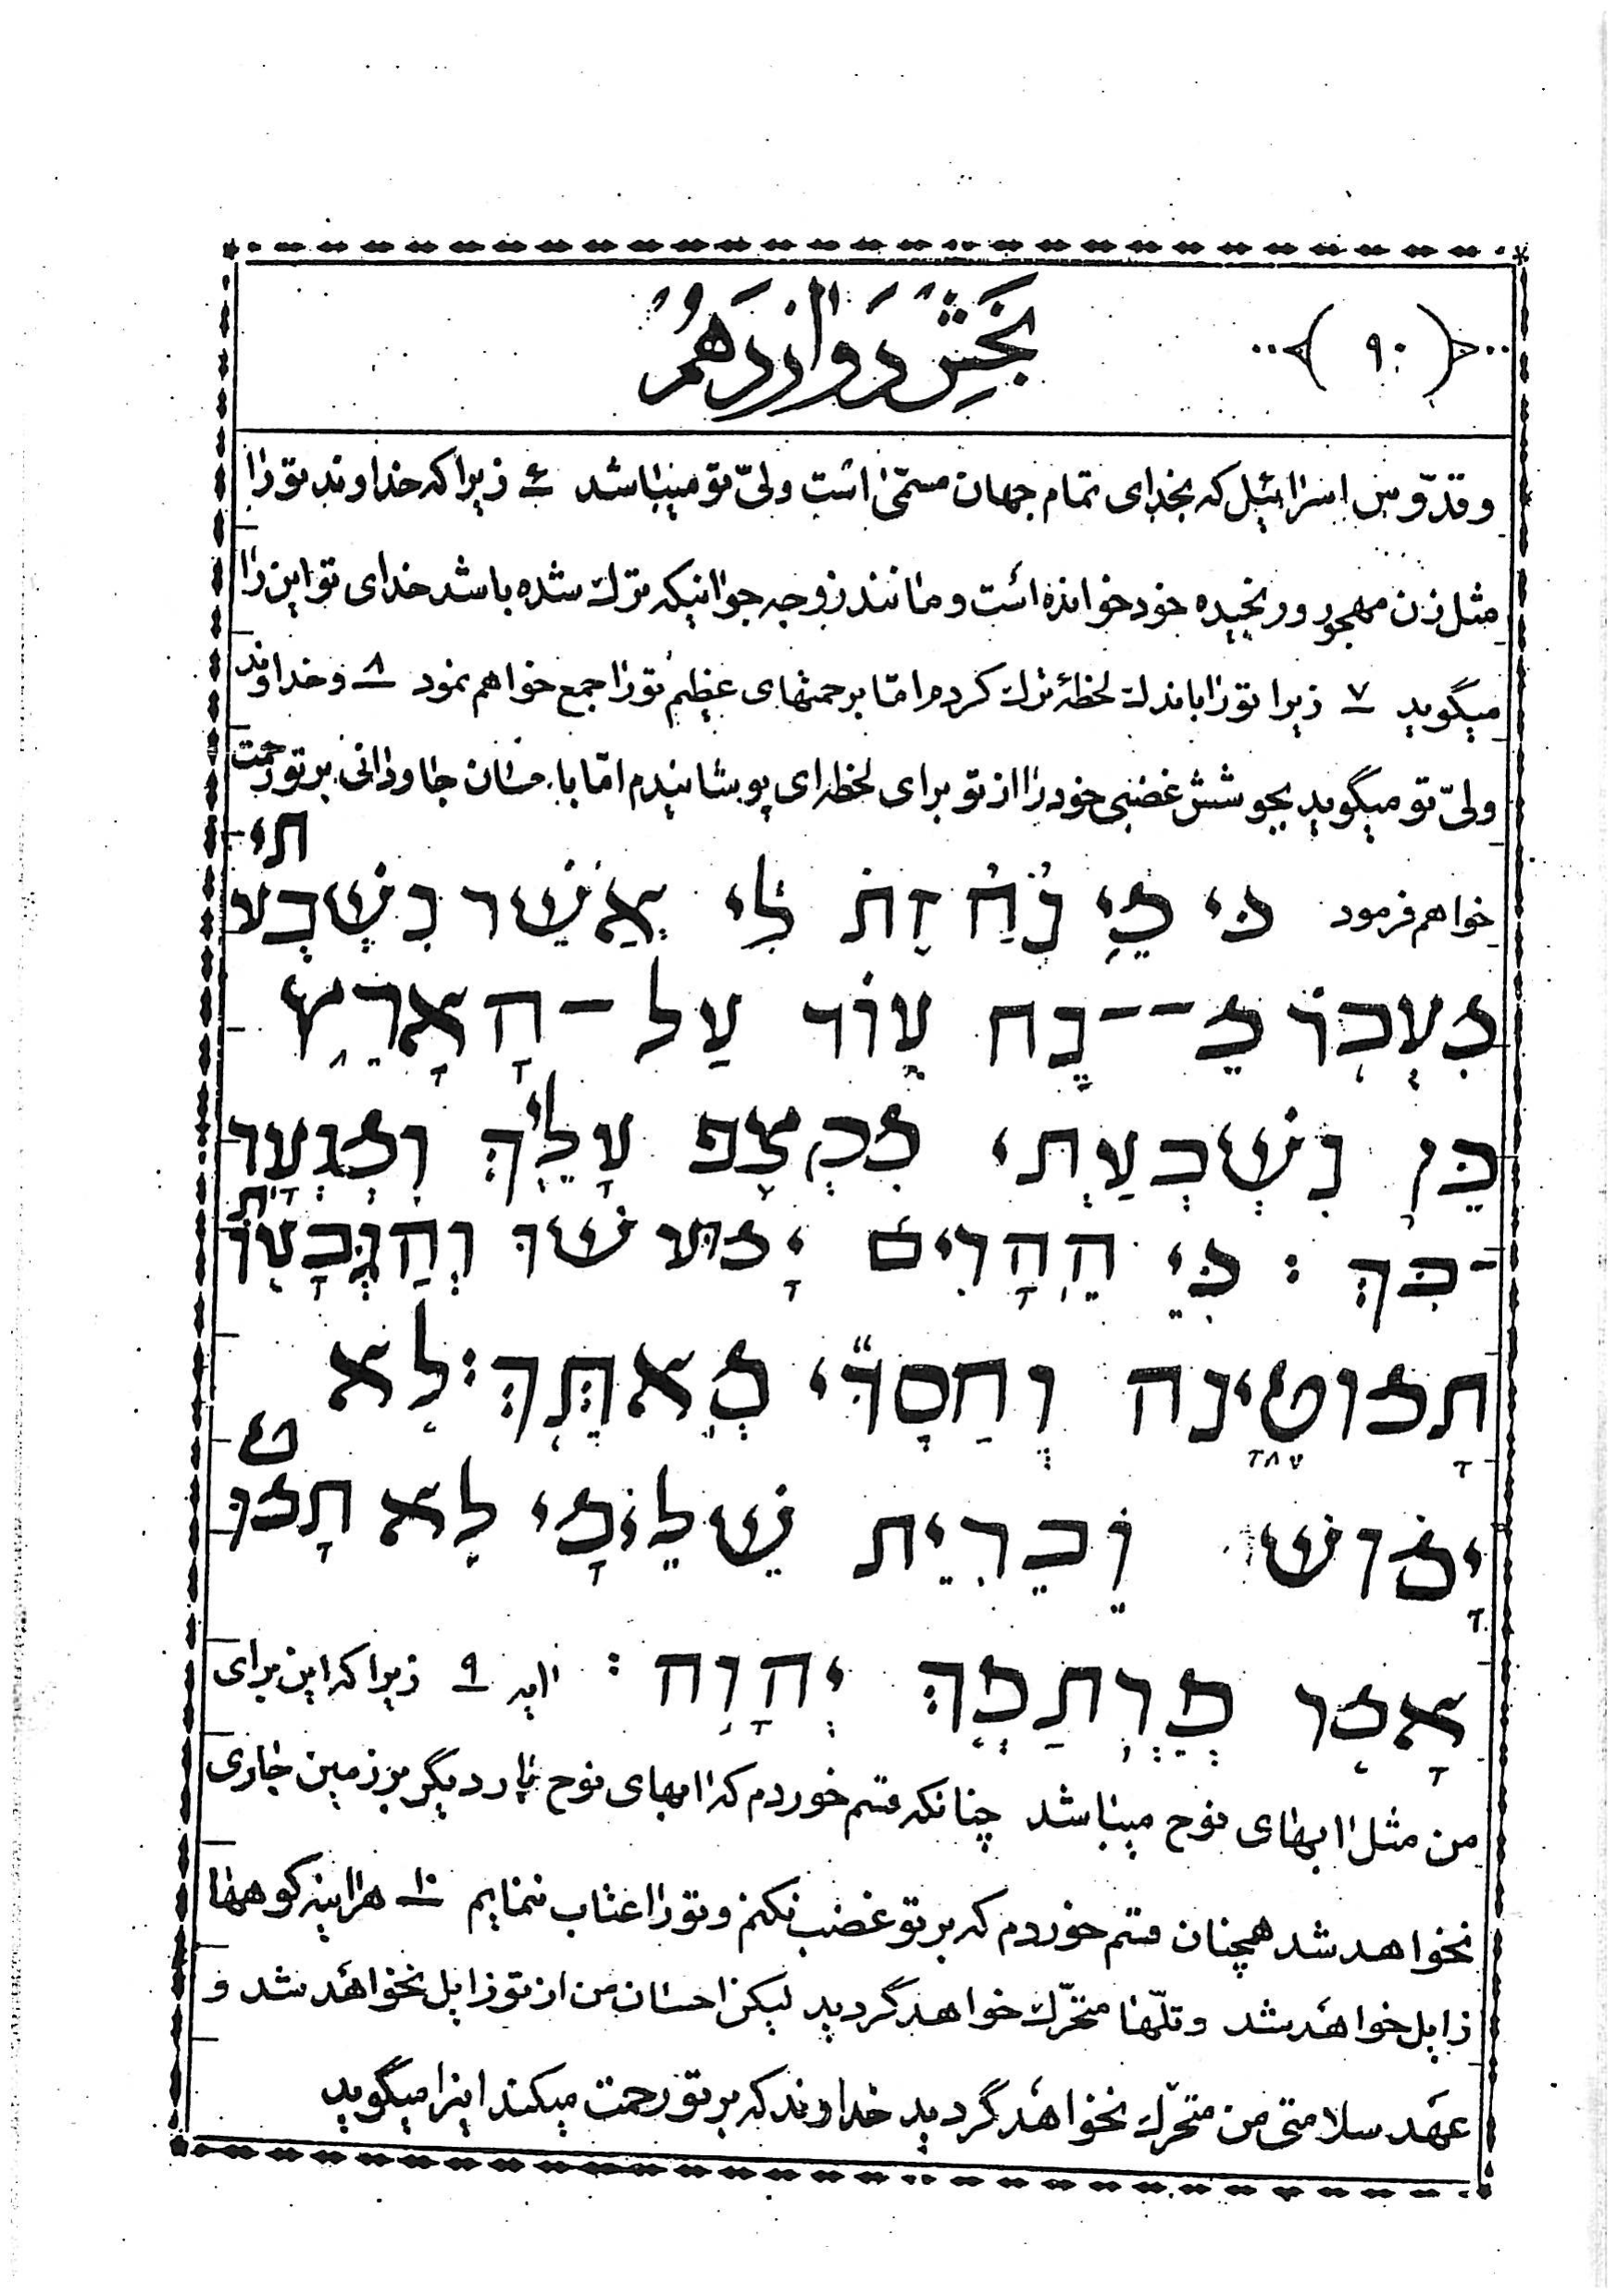 ﴿ ٩٠ ﴾ بَخَشِ دَوازدَهُمُ
و قدّوس اسرائیل که بخدای تمام جهان مسمّی است ولیّ تو میباشد ۶ زیرا که خداوند تو را
مثل زن مهجور و رنجیده خود خوانده است و مانند زوجه جوانیکه ترک شده باشد خدای تو این را
میگوید ۷ زیرا تو را باندک لحظهٔ ترک کردم امّا برحمتهای عظیم تو را جمع خواهم نمود ۸ و خداوند
ولیّ تو میگوید بجوشش غضبی خود را از تو برای لحظه‌ای پوشانیدم امّا با احسان جاودانی بر تو رحمت
خواهم فرمود כי מי נח זאת לי אשר נשבעתי
מעבור מי--נח עוד על-הארץ
כן נשבעתי מקצף עליך ומגער
-בך : כי ההרים ימושו והגבעות
תמוטינה וחסדי מאתך: לא
ימוש וברית שלומי לא תמוט
אמר מרחמך יהוה : ایه ٩ زیرا که این برای
من مثل ابهای نوح میباشد چنانکه قسم خوردم که ابهای نوح بار دیگر بر زمین جاری
نخواهد شد همچنان قسم خوردم که بر تو غضب نکنم و تو را عتاب ننمایم ١٠ هراینه کوهها
زایل خواهد شد و تلّها متحرّک خواهد گردید لیکن احسان من از تو زایل نخواهد شد و
عهد سلامتی من متحرّک نخواهد گردید خداوند که بر تو رحمت میکند اینرا میگوید